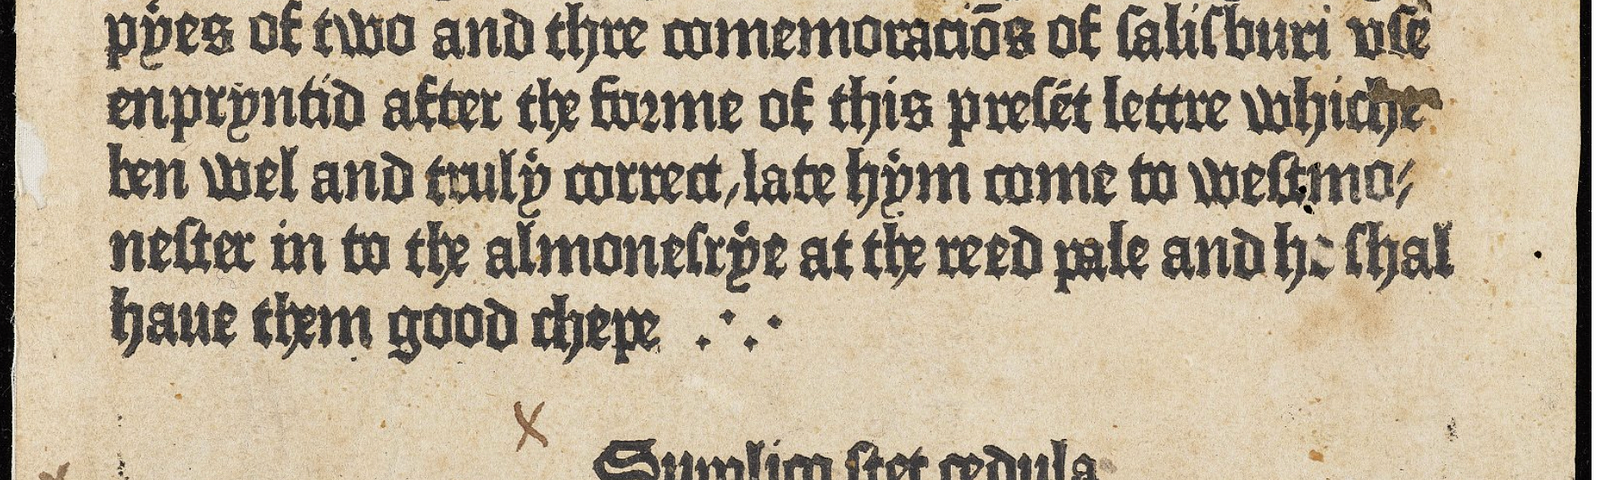 pyes of two and thre comemoraciōs of salisburi vse
enpryntid after the forme of this presēt lettre whiche
ben wel and truly correct, late hym come to westmo⸗
nester in to the almonesrye at the reed pale and he shal
haue them good chepe .·.·
Supplico stet cedula